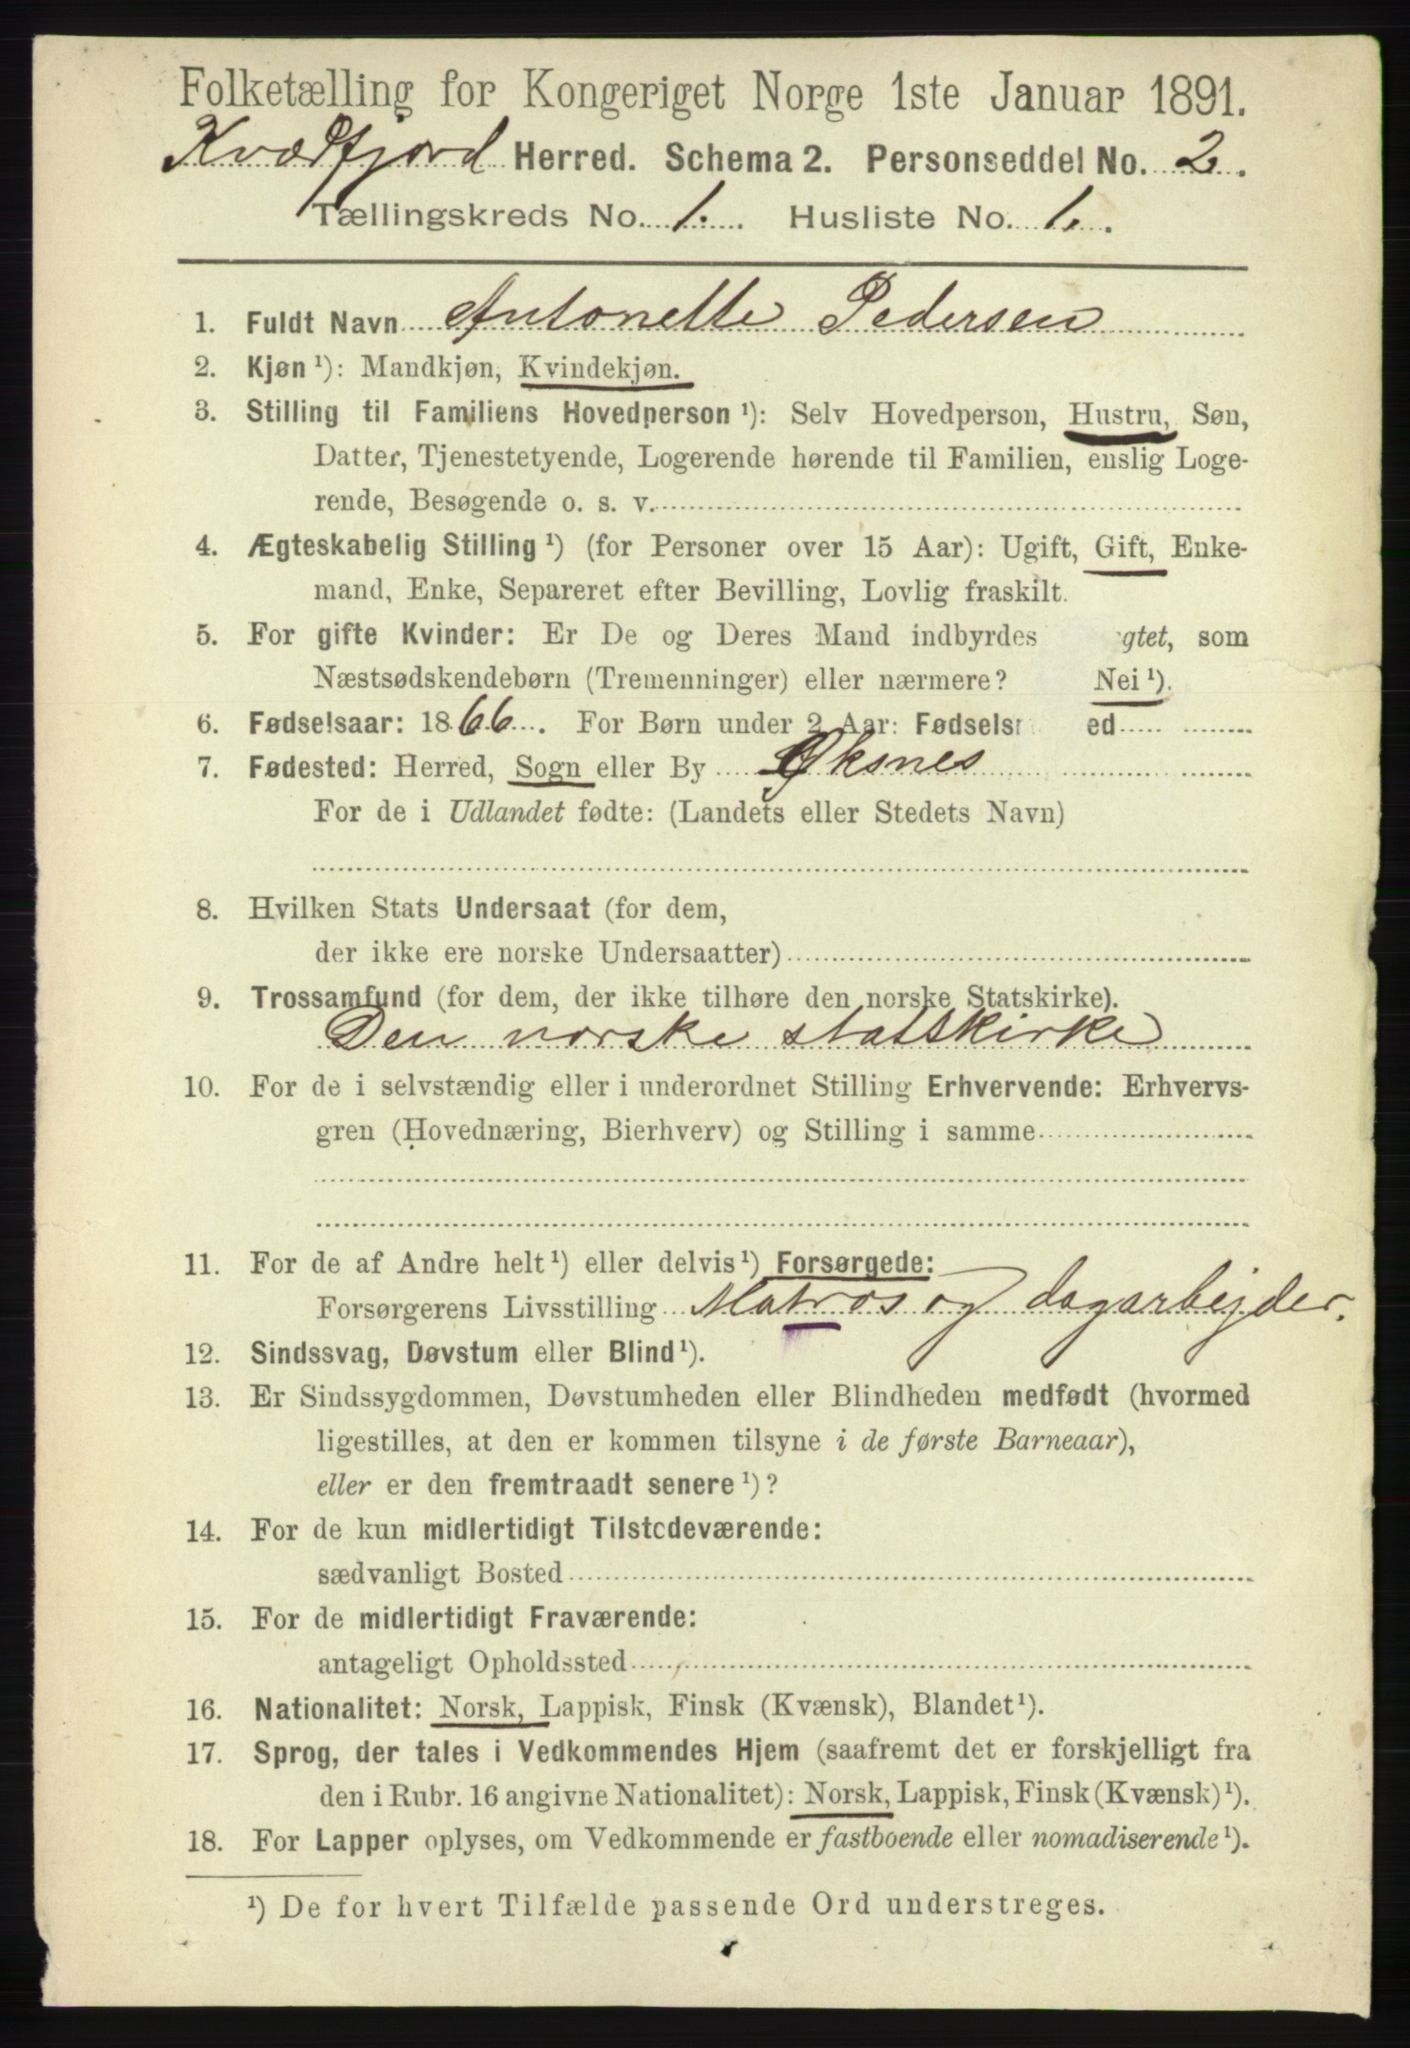 Folketælling for Kongeriget Norge 1ste Januar 1891.
Kvædfjord Herred. Schema 2. Personseddel No. 2.
Tællingskreds No. 1. Husliste No. 1.
1. Fuldt Navn Antonette Pedersen
2. Kjøn ¹): Mandkjøn, Kvindekjøn.
3. Stilling til Familiens Hovedperson ¹): Selv Hovedperson, Hustru, Søn,
Datter, Tjenestetyende, Logerende hørende til Familien, enslig Loge-
rende, Besøgende o. s. v.
4. Ægteskabelig Stilling ¹) (for Personer over 15 Aar): Ugift, Gift, Enke-
mand, Enke, Separeret efter Bevilling, Lovlig fraskilt.
5. For gifte Kvinder: Er De og Deres Mand indbyrdes gtet, som
Næstsødskendebørn (Tremenninger) eller nærmere? Nei ¹).
6. Fødselsaar: 1866. For Børn under 2 Aar: Fødsels ed
7. Fødested: Herred, Sogn eller By Øksnes
For de i Udlandet fødte: (Landets eller Stedets Navn)
8. Hvilken Stats Undersaat (for dem,
der ikke ere norske Undersaatter)
9. Trossamfund (for dem, der ikke tilhøre den norske Statskirke).
Den norske statskirke
10. For de i selvstændig eller i underordnet Stilling Erhvervende: Erhvervs-
gren (Hovednæring, Bierhverv) og Stilling i samme
11. For de af Andre helt ¹) eller delvis ¹) Forsørgede:
Forsørgerens Livsstilling Matros og dagarbejder.
12. Sindssvag, Døvstum eller Blind ¹).
13. Er Sindssygdommen, Døvstumheden eller Blindheden medfødt (hvormed
ligestilles, at den er kommen tilsyne i de første Barneaar),
eller er den fremtraadt senere ¹)?
14. For de kun midlertidigt Tilstedeværende:
sædvanligt Bosted
15. For de midlertidigt Fraværende:
antageligt Opholdssted
16. Nationalitet: Norsk, Lappisk, Finsk (Kvænsk), Blandet ¹).
17. Sprog, der tales i Vedkommendes Hjem (saafremt det er forskjelligt fra
den i Rubr. 16 angivne Nationalitet): Norsk, Lappisk, Finsk (Kvænsk) ¹).
18. For Lapper oplyses, om Vedkommende er fastboende eller nomadiserende ¹).
¹) De for hvert Tilfælde passende Ord understreges.